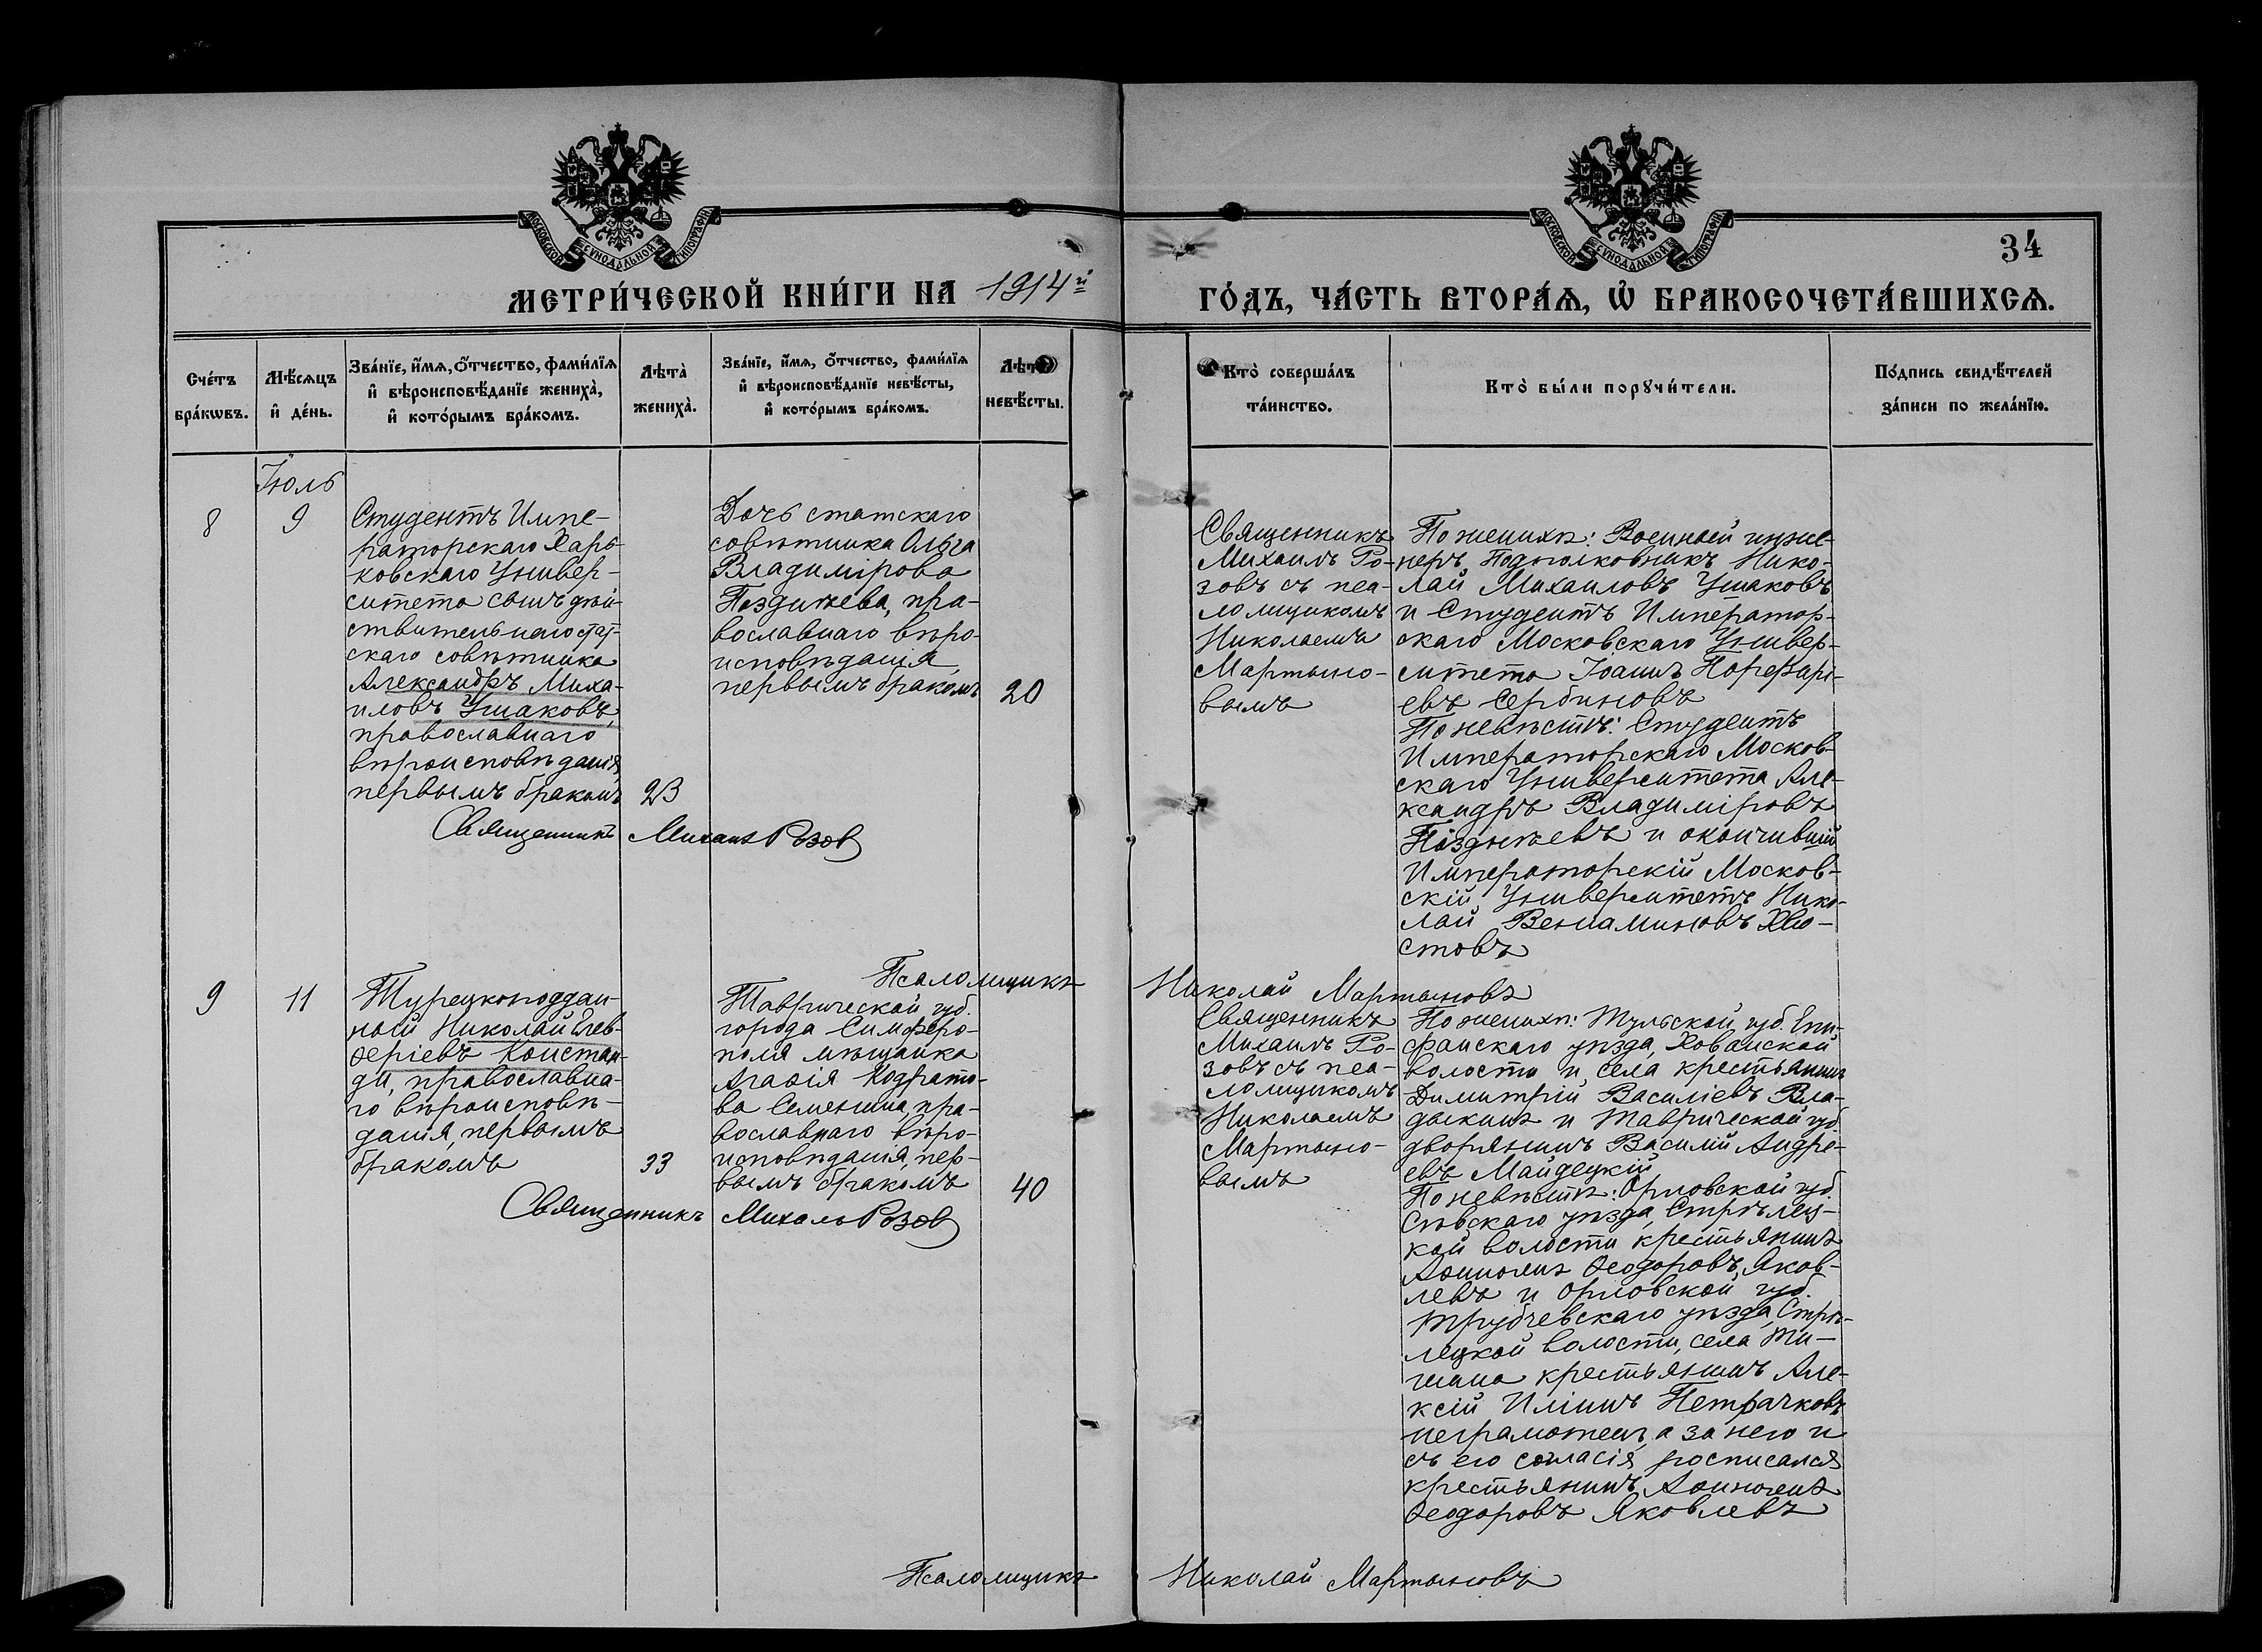 МОСКОВСКОЙ СУНОДАЛЬНОЙ ТИПОГРАФІИ
МОСКОВСКОЙ СУНОДАЛЬНОЙ ТИПОГРАФІИ
34
МЕТРИ́ЧЕСКОЙ КНИ́ГИ НА 1914й
ГО́ДЪ, ЧА́СТЬ ВТОРА́Ѧ, Ѡ҆ БРАКОСОЧЕТА́ВШИХСѦ.
Сче́тъ
бра́кѡвъ.
Мѣ́сѧцъ
и҆ де́нь.
Зва́нїе, и҆́мѧ, ѻ҆́тчество, фами́лїѧ
и҆ вѣроисповѣ́данїе жениха̀,
и҆ кото́рымъ бра́комъ.
Лѣта̀
жениха̀.
Зва́нїе, и҆́мѧ, ѻ҆́тчество, фами́лїѧ
и҆ вѣроисповѣ́данїе невѣ́сты,
и҆ кото́рымъ бра́комъ.
Лѣта̀
невѣ́сты.
Кто̀ соверша́лъ
та́инство.
Кто̀ бы́ли порꙋчи́тели.
По́дпись свидѣ́телей
за́писи по жела́нїю.
Іюль
8
9
Студентъ Импе-
раторскаго Харь-
ковскаго Универ-
ситета сынъ дѣй-
ствительнаго стат-
скаго совѣтника
Александръ Миха-
иловъ Ушаковъ,
православнаго
вѣроисповѣданія,
первымъ бракомъ
23
Дочь статскаго
совѣтника Ольга
Владимірова
Позднѣева, пра-
вославнаго вѣро-
исповѣданія,
первымъ бракомъ
20
Священникъ
Михаилъ Ро-
зовъ съ пса-
ломщикомъ
Николаемъ
Мартыно-
вымъ
По женихѣ: Военный инже-
неръ Подполковникъ Нико-
лай Михаиловъ Ушаковъ
и Студентъ Император-
скаго Московскаго Универ-
ситета Іоаннъ
евъ Сербиновъ
По невѣстѣ: Студентъ
Императорскаго Москов-
скаго Университета Але-
ксандръ Владиміровъ
Позднѣевъ и окончившій
Императорскій Москов-
скій Университетъ Нико-
лай Веніаминовъ Хво-
стовъ
Священникъ Михаилъ Розовъ
Псаломщикъ Николай Мартыновъ
9
11
Турецкоподдан-
ный Николай Елев-
ѳеріевъ Констан-
ди, православна-
го вѣроисповѣ-
данія, первымъ
бракомъ
33
Таврической губ.
города Симферо-
поля мѣщанка
Агаѳія Кодрато-
ва Семенина, пра-
вославнаго вѣро-
исповѣданія, пер-
вымъ бракомъ
40
Священникъ
Михаилъ Ро-
зовъ съ пса-
ломщикомъ
Николаемъ
Мартыно-
вымъ
По женихѣ: Тульской губ. Епи-
фанскаго уѣзда,
волости и села крестьянинъ
Димитрій Василіевъ Вла-
дыкинъ и Таврической губ.
дворянинъ Василій Андре-
евъ Майдецкій
По невѣстѣ: Орловской губ.
Сѣвскаго уѣзда, Стрѣлец-
кой волости крестьянинъ
Аѳиногенъ Ѳеодоровъ Яков-
левъ и Орловской губ.
Трубчевскаго уѣзда, Стрѣ-
лецкой волости, села
крестьянинъ Але-
ксій Иліинъ Петрачковъ
неграмотенъ, а за него и
съ его согласія росписался
крестьянинъ Аѳиногенъ
Ѳеодоровъ Яковлевъ
Священникъ Михаилъ Розовъ
Псаломщикъ Николай Мартыновъ